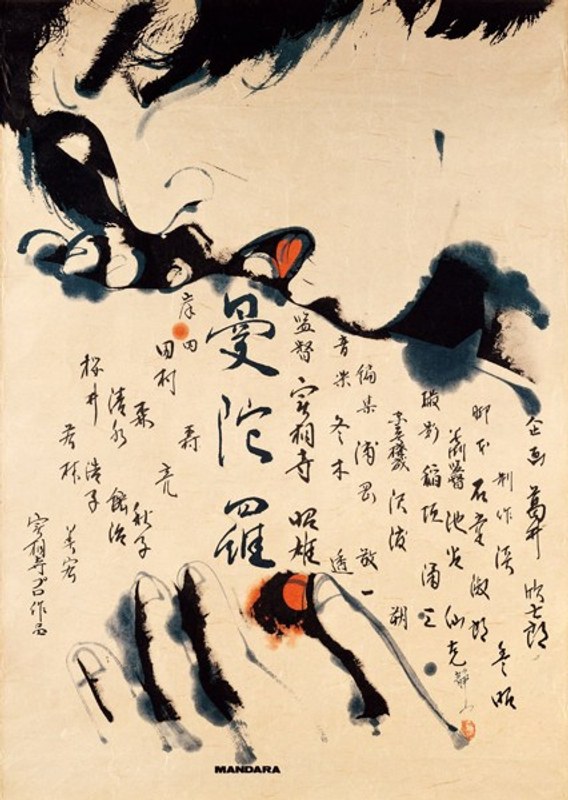 企画 葛井 欣士郎
制作 淡 豊昭
脚本 石堂 淑朗
美術監督 池谷 仙克
静山
撮影 稲垣 涌三
沢渡 朔
編集 浦岡 敬一
音楽 冬木 透
監督 実相寺 昭雄
曼陀羅
岸田
田村 亮
森 秋子
清水 紘治
桜井 浩子
若林 美宏
実相寺プロ作品
MANDARA